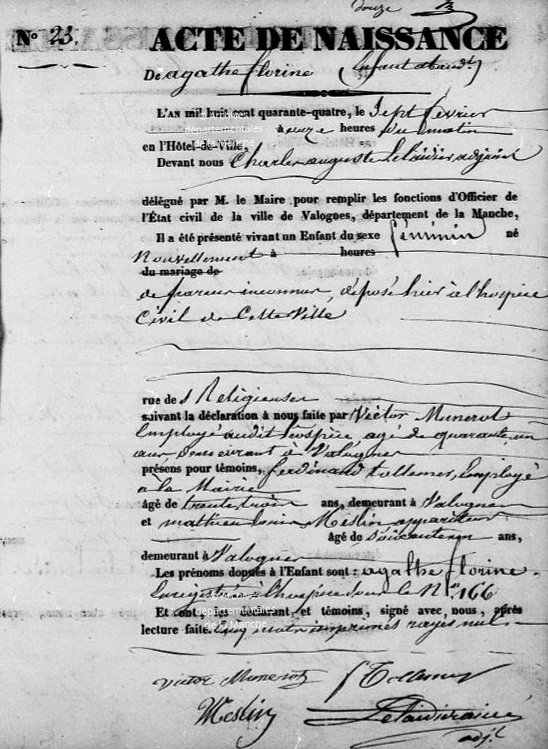 douze
N° 23.
ACTE DE NAISSANCE
De agathe florine (Enfant aband.)
L'AN mil huit cent quarante-quatre, le Sept février
à onze heures du matin
en l'Hôtel-de-Ville,
Devant nous Charles auguste adjoint
délégué par M. le Maire pour remplir les fonctions d'Officier de
l'État civil de la ville de Valognes, département de la Manche,
Il a été présenté vivant un Enfant du sexe féminin né
Nouvellement à heures
du mariage de
de parens inconnus, déposé hier à l'hospice
Civil de Cette Ville
rue des Religieuses
suivant la déclaration à nous faite par Victor Munerot
Employé audit hospice, agé de quarante un
ans demeurant à Valognes
présens pour témoins, ferdinand tollemer, Employé
a la Mairie
âgé de trente trois ans, demeurant à Valognes
et mathieu louis Meslin appariteur
âgé de Soixante un ans,
demeurant à Valognes
Les prénoms donnés à l'Enfant sont: agathe florine
Enregistrée à l'hospice sous le N° 166
Et ont, les déclarant et témoins, signé avec nous, après
lecture faite. Cinq mots imprimés rayés nuls
Victor Munerot
Tollemer
Meslin
adjt
archives
départementales
de la Manche